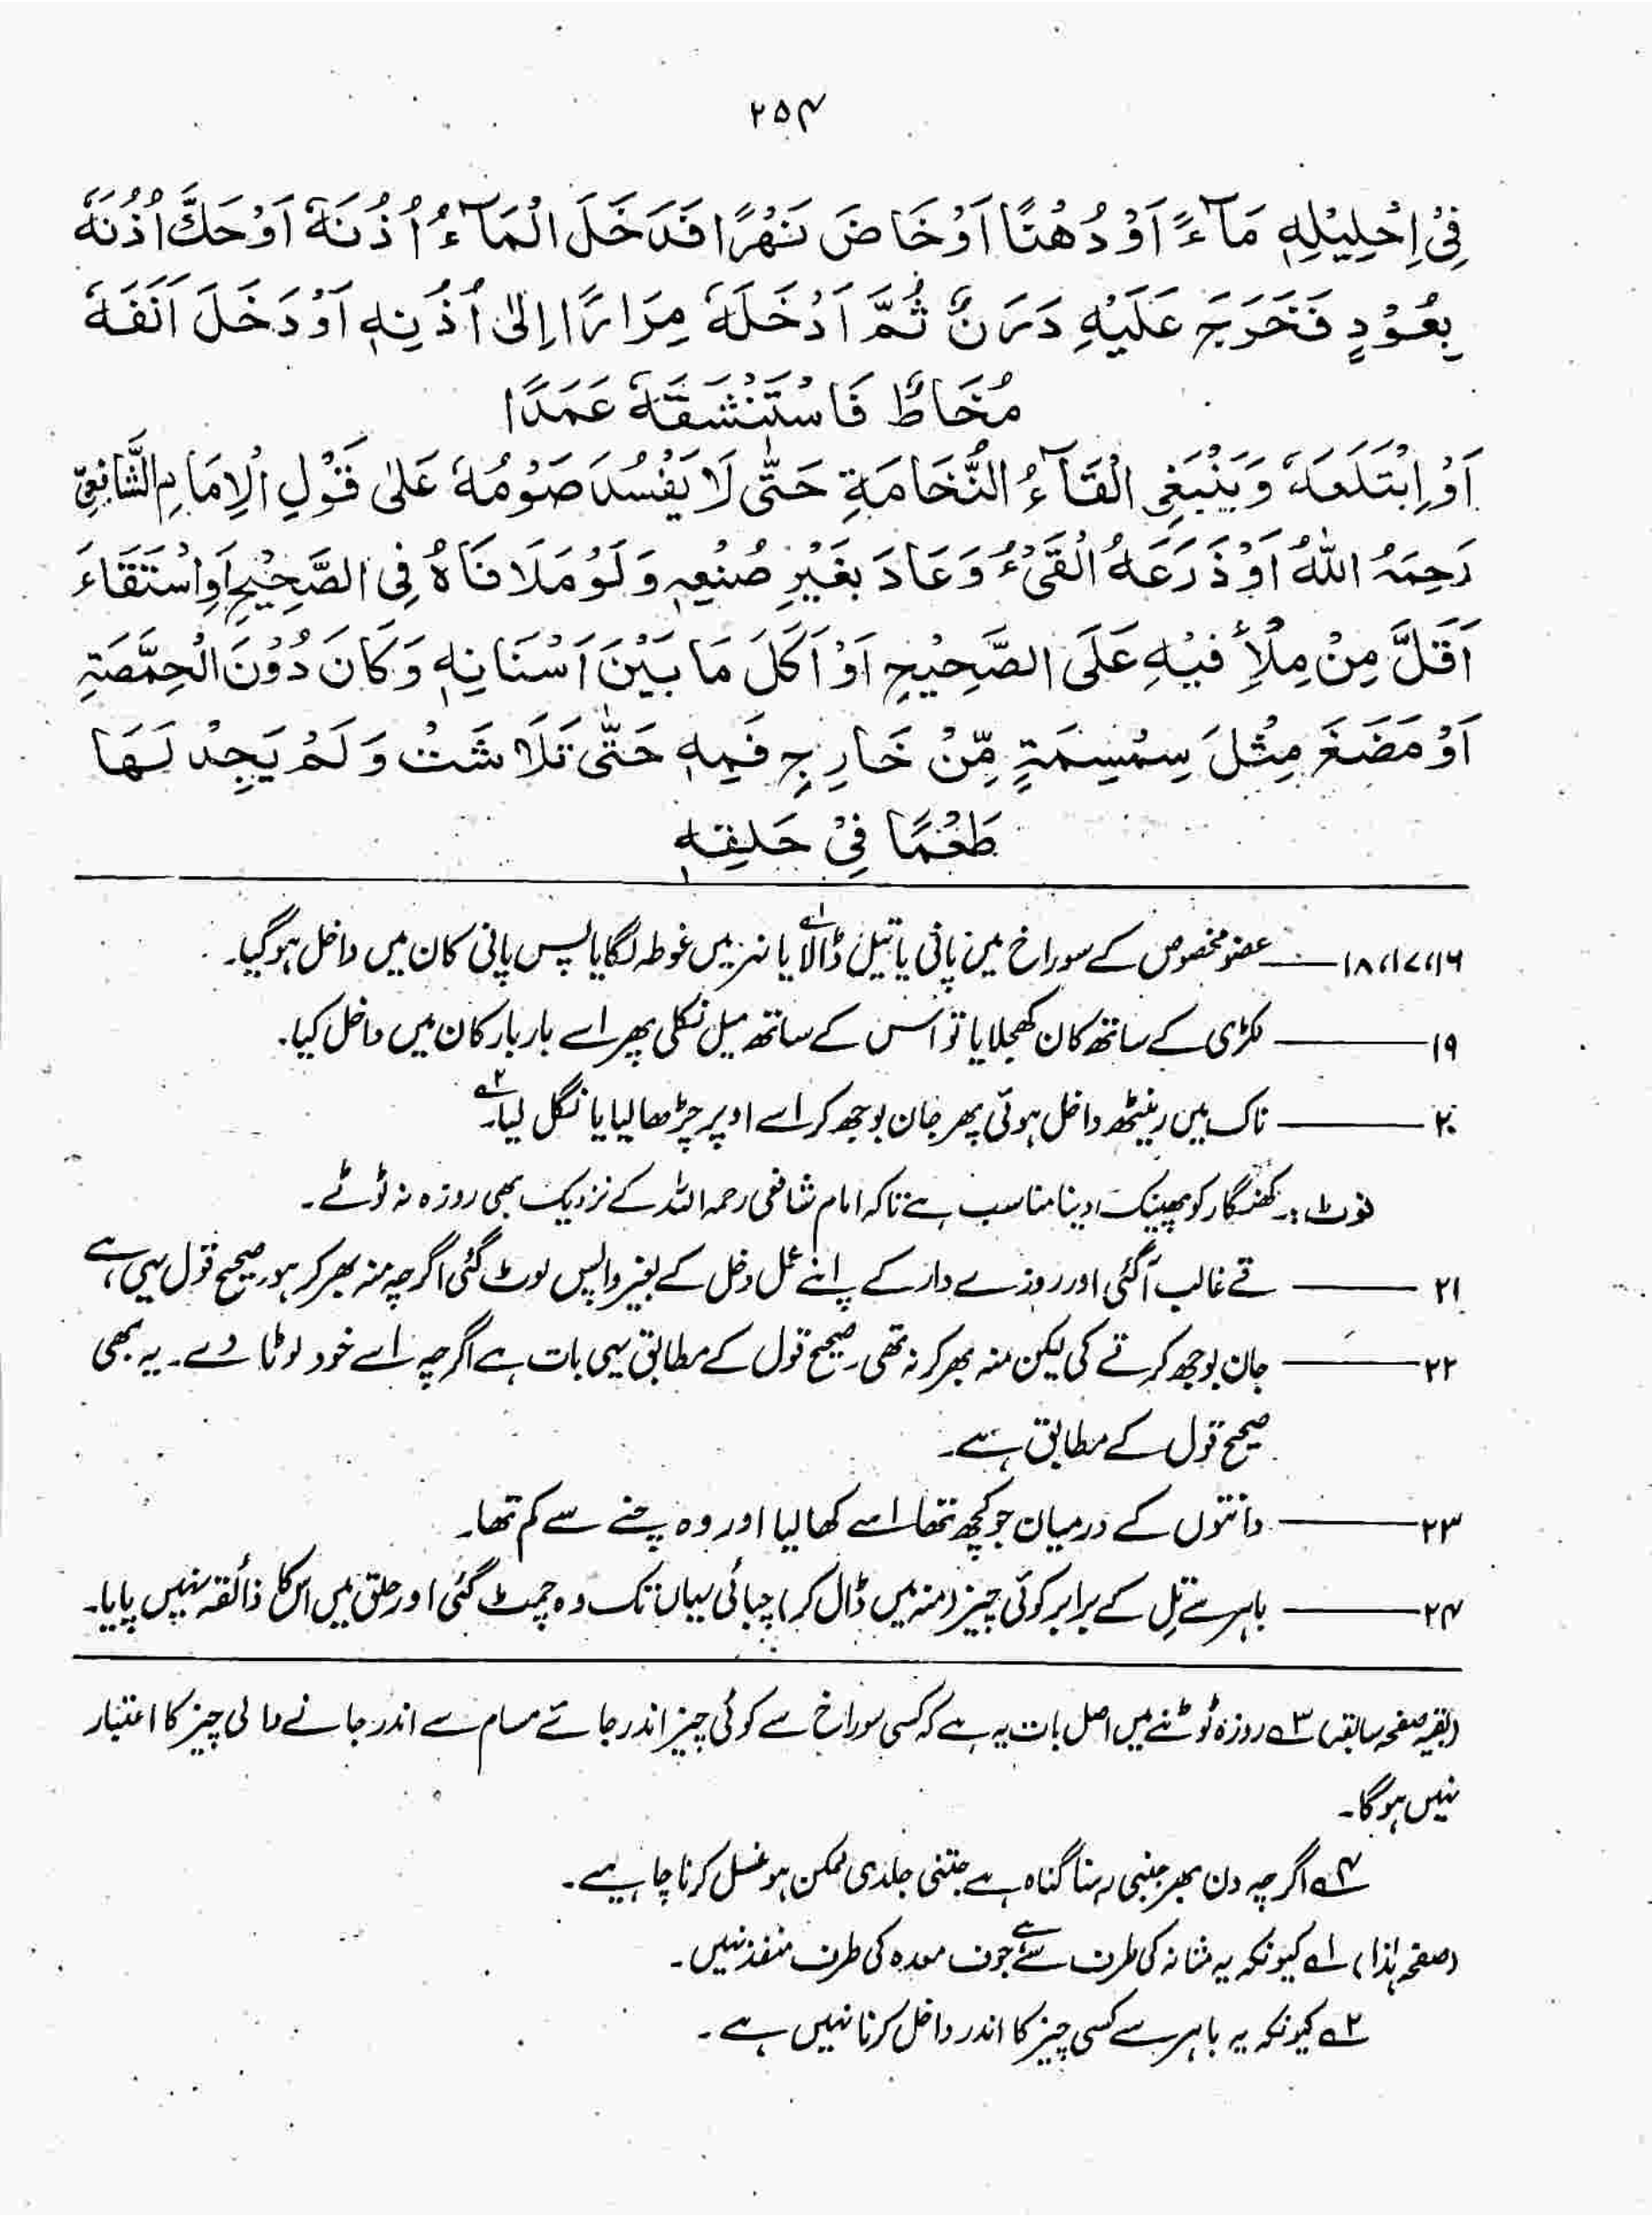 ۲۵۴
فِيْ اِحْلِيْلِهٖ مَآءً اَوْ دُهْنًا اَوْ خَاضَ نَهْرًا فَدَخَلَ الْمَآءُ اُذُنَهٗ اَوْ حَكَّ اُذُنَهٗ
بِعُوْدٍ فَخَرَجَ عَلَيْهِ دَرَنٌ ثُمَّ اَدْخَلَهٗ مِرَارًا اِلٰى اُذُنِهٖ اَوْ دَخَلَ اَنْفَهٗ
مُخَاطٌ فَاسْتَنْشَقَهٗ عَمَدًا
اَوِ ابْتَلَعَهٗ وَيَنْبَغِي الْقَآءُ النُّخَامَةِ حَتّٰى لَا يَفْسُدَ صَوْمُهٗ عَلٰى قَوْلِ الْاِمَامِ الشَّافِعِيِّ
رَحِمَهُ اللّٰهُ اَوْ ذَرَعَهُ الْقَيْءُ وَعَادَ بِغَيْرِ صُنْعِهٖ وَلَوْ مَلَا فَاهُ فِي الصَّحِيْحِ اَوِ اسْتَقَاءَ
اَقَلَّ مِنْ مِلْأِ فِيْهِ عَلَى الصَّحِيْحِ اَوْ اَكَلَ مَا بَيْنَ اَسْنَانِهٖ وَكَانَ دُوْنَ الْحِمَّصَةِ
اَوْ مَضَغَ مِثْلَ سِمْسِمَةٍ مِّنْ خَارِجِ فَمِهٖ حَتّٰى تَلَاشَتْ وَلَمْ يَجِدْ لَهَا
طَعْمًا فِيْ حَلْقِهٖ
۱۶، ۱۷، ۱۸ ـــــ عضو مخصوص کے سوراخ میں پانی یا تیل ڈالا لے۱ یا نہر میں غوطہ لگایا پس پانی کان میں داخل ہو گیا۔
۱۹ ـــــ لکڑی کے ساتھ کان کھجلایا تو اس کے ساتھ میل نکلی پھر اسے بار بار کان میں داخل کیا۔
۲۰ ـــــ ناک میں رینٹھ داخل ہوئی پھر جان بوجھ کر اسے اوپر چڑھا لیا یا نگل لیا۔ ۲ے
نوٹ :۔ کھنگار کو پھینک دینا مناسب ہے تاکہ امام شافعی رحمہ اللہ کے نزدیک بھی روزہ نہ ٹوٹے۔
۲۱ ـــــ قے غالب آگئی اور روزے دار کے اپنے عمل دخل کے بغیر واپس لوٹ گئی اگرچہ منہ بھر کر ہو صحیح قول یہی ہے،
۲۲ ـــــ جان بوجھ کر قے کی لیکن منہ بھر کر نہ تھی۔ صحیح قول کے مطابق یہی بات ہے اگرچہ اسے خود لوٹا دے۔ یہ بھی
صحیح قول کے مطابق ہے۔
۲۳ ـــــ دانتوں کے درمیان جو کچھ تھا اسے کھا لیا اور وہ چنے سے کم تھا۔
۲۴ ـــــ باہر سے تِل کے برابر کوئی چیز (منہ میں ڈال کر) چبائی یہاں تک وہ چمٹ گئی اور حلق میں اس کا ذائقہ نہیں پایا۔
(بقیہ صفحہ سابقہ) ۳ے روزہ ٹوٹنے میں اصل بات یہ ہے کہ کسی سوراخ سے کوئی چیز اندر جائے مسام سے اندر جانے والی چیز کا اعتبار
نہیں ہوگا۔
۴ے اگرچہ دن بھر جنبی رہنا گناہ ہے جتنی جلدی ممکن ہو غسل کرنا چاہیے۔
(صفحہ ہٰذا) ۱ے کیونکہ یہ مثانہ کی طرف سے ہے جوف معدہ کی طرف منفذ نہیں۔
۲ے کیونکہ یہ باہر سے کسی چیز کا اندر داخل کرنا نہیں ہے۔